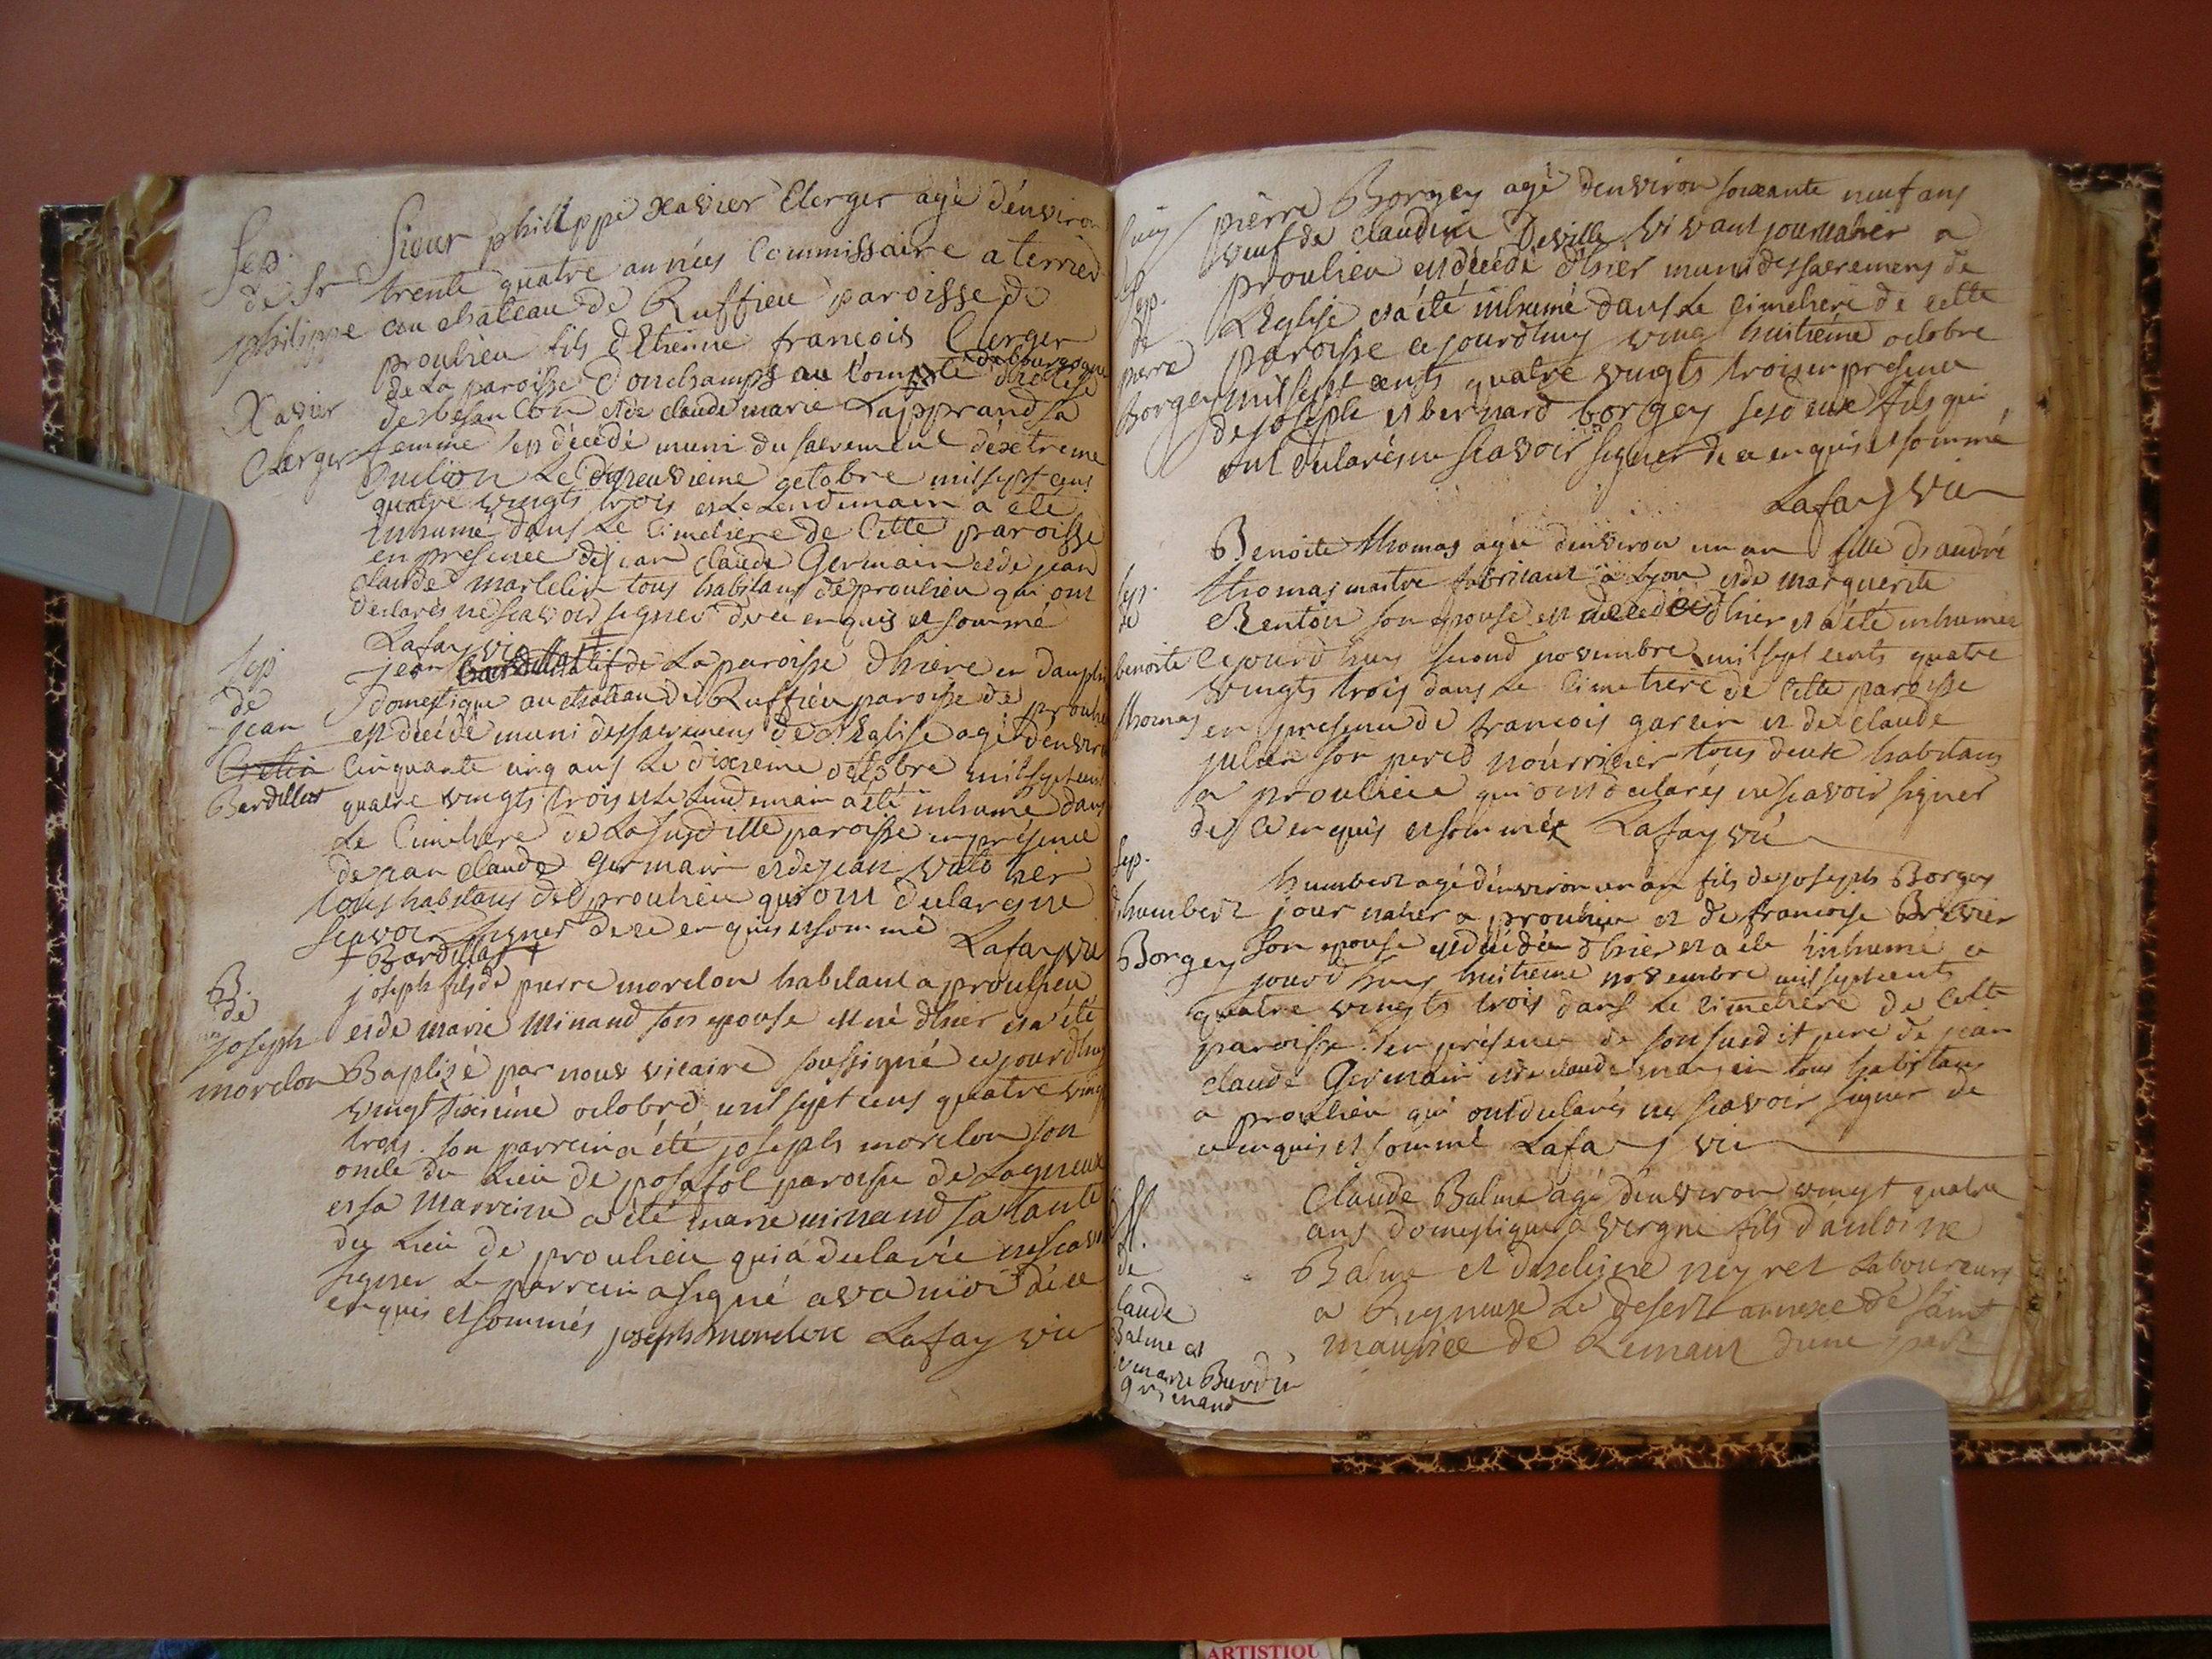 Sep.
de Sr
philippe
Xavier
Clerger
Sieur philippe xavier Clerger agé d'énviron
trente quatre années Commissaire a terrier
au chateau de Ruffieu paroisse de
proulieu fils d'Etienne françois Clerger
de La paroisse Donchamps au Comté de bourgogne diocese
de besancon et de claude marie Lapprand sa
femme est décédé muni du sacrement déxtreme
onction Le octobre mil sept cens
quatre vingts trois et Le Lendemain a été
inhumé dans Le Cimetiere de Cette paroisse
en presence de jean claude Germain et de jean
claude marcelin tous habitans de proulieu qui ont
déclarés ne scavoir signer de ce enquis et sommé
Lafay vic
Sep
de
jean
Bardillot
jean de La paroisse dhiere en dauphi
domestique au chateau de Ruffieu paroisse de proulieu
est décédé muni des sacremens de L'Eglise agé denviron
Cinquante cinq ans Le dixieme octobre mil sept cens
quatre vingts trois et Le Lendemain a été inhumé dans
Le Cimetiere de La susditte paroisse en présence
de jean claude Germain et de jean
tous habitans de proulieu qui ont déclarés ne
scavoir signer de ce enquis et sommé
+ Bardillot + Lafay vic
B.
de
joseph
morelon
joseph fils de pierre morelon habitant a proulieu
et de marie Minand son epouse est né dhier et a été
Baptisé par nous vicaire soussigné ce jourdhuy
vingt sixieme octobre mil sept cens quatre vingt
trois. son parrein a été joseph morelon son
oncle du Lieu de posafol paroisse de Lagnieux
et sa marreine a été marie minand sa tante
du Lieu de proulieu qui a déclarée ne scavoir
signer Le parrein a signé avec moi de ce
enquis et sommés joseph morelon Lafay vic
Sep.
de
pierre
Borgey
pierre Borgey agé denviron soixante neuf ans
veuf de claudine Deville vivant journalier a
proulieu est décédé dhier muni des sacremens de
L'Eglise et a été inhumé dans Le cimetiere de cette
paroisse ce jourdhuy ving huitième octobre
mil sept cents quatre vingts trois en presence
de joseph et bernard borgey ses deux fils qui
ont déclarés ne scavoir signer de ce enquis et sommé
Lafay vic
Sep.
de
benoite
thomas
Benoite thomas agée denviron un an fille d'andré
thomas maitre fabricant a Lyon et de marguerite
Renton son epouse est décédée dhier et a été inhumée
Ce jourd'huy second novembre mil sept cents quatre
vingts trois dans Le Cimetiere de Cette paroisse
en presence de francois garcin et de claude
julien son pere nourricier tous deux habitans
a proulieu qui ont déclarés ne scavoir signer
de ce enquis et sommé Lafay vic
Sep.
d'humbert
Borgey
humbert agé dénviron un an fils de joseph Borgey
journalier a proulieu et de francoise
son epouse est décédé dhier et a été inhumé ce
jourd'huy huitieme novembre mil sept cents
quatre vingts trois dans Le Cimetiere de Cette
paroisse en présence de son susdit pere de jean
claude Germain et de claude tous habitans
a proulieu qui ont déclarés ne scavoir signer de
ce enquis et sommé Lafay vic
ff.
de
Claude
Balme et
marie Burdin
grinand
Claude Balme agé d'énviron vingt quatre
ans domestique a vergne fils d'antoine
Balme et neyret Laboureurs
a Rigneux Le desert annexe de saint
maurice de Remans dune part
ARTISTIQU